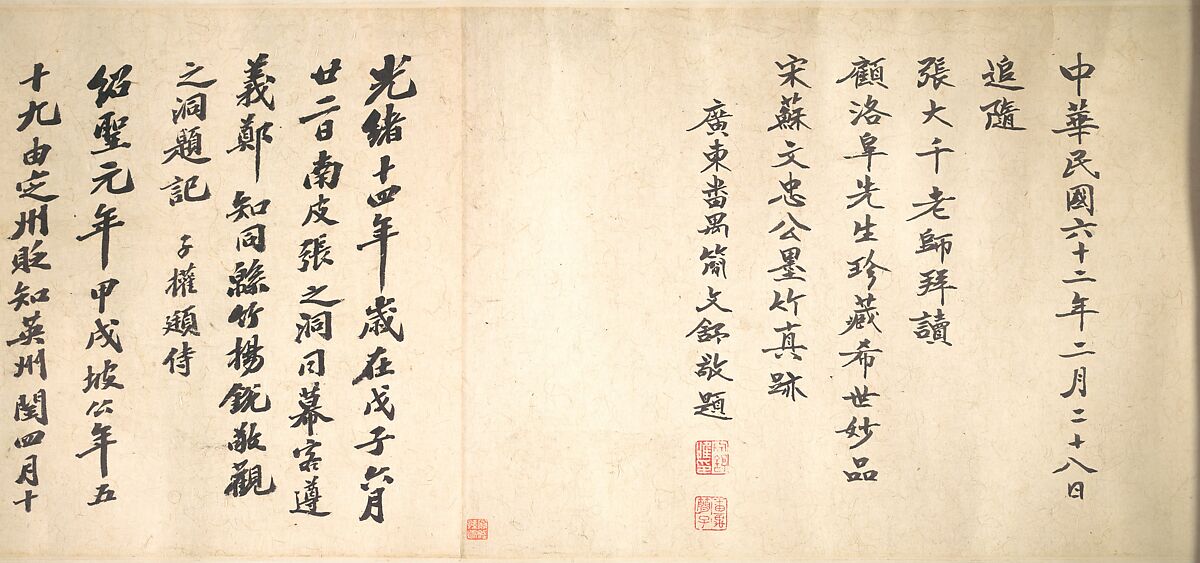 中華民國六十二年二月二十八日
追隨
張大千老師拜讀
顧洛阜先生珍藏希世妙品
宋蘇文忠公墨竹真跡
廣東番禺簡文舒敬題
光緒十四年歲在戊子六月
廿二日南皮張之洞同幕客遵
義鄭知同緜竹楊銳敬觀
之洞題記 子權頲侍
紹聖元年甲戌坡公年五
十九由定州貶知英州閏四月十